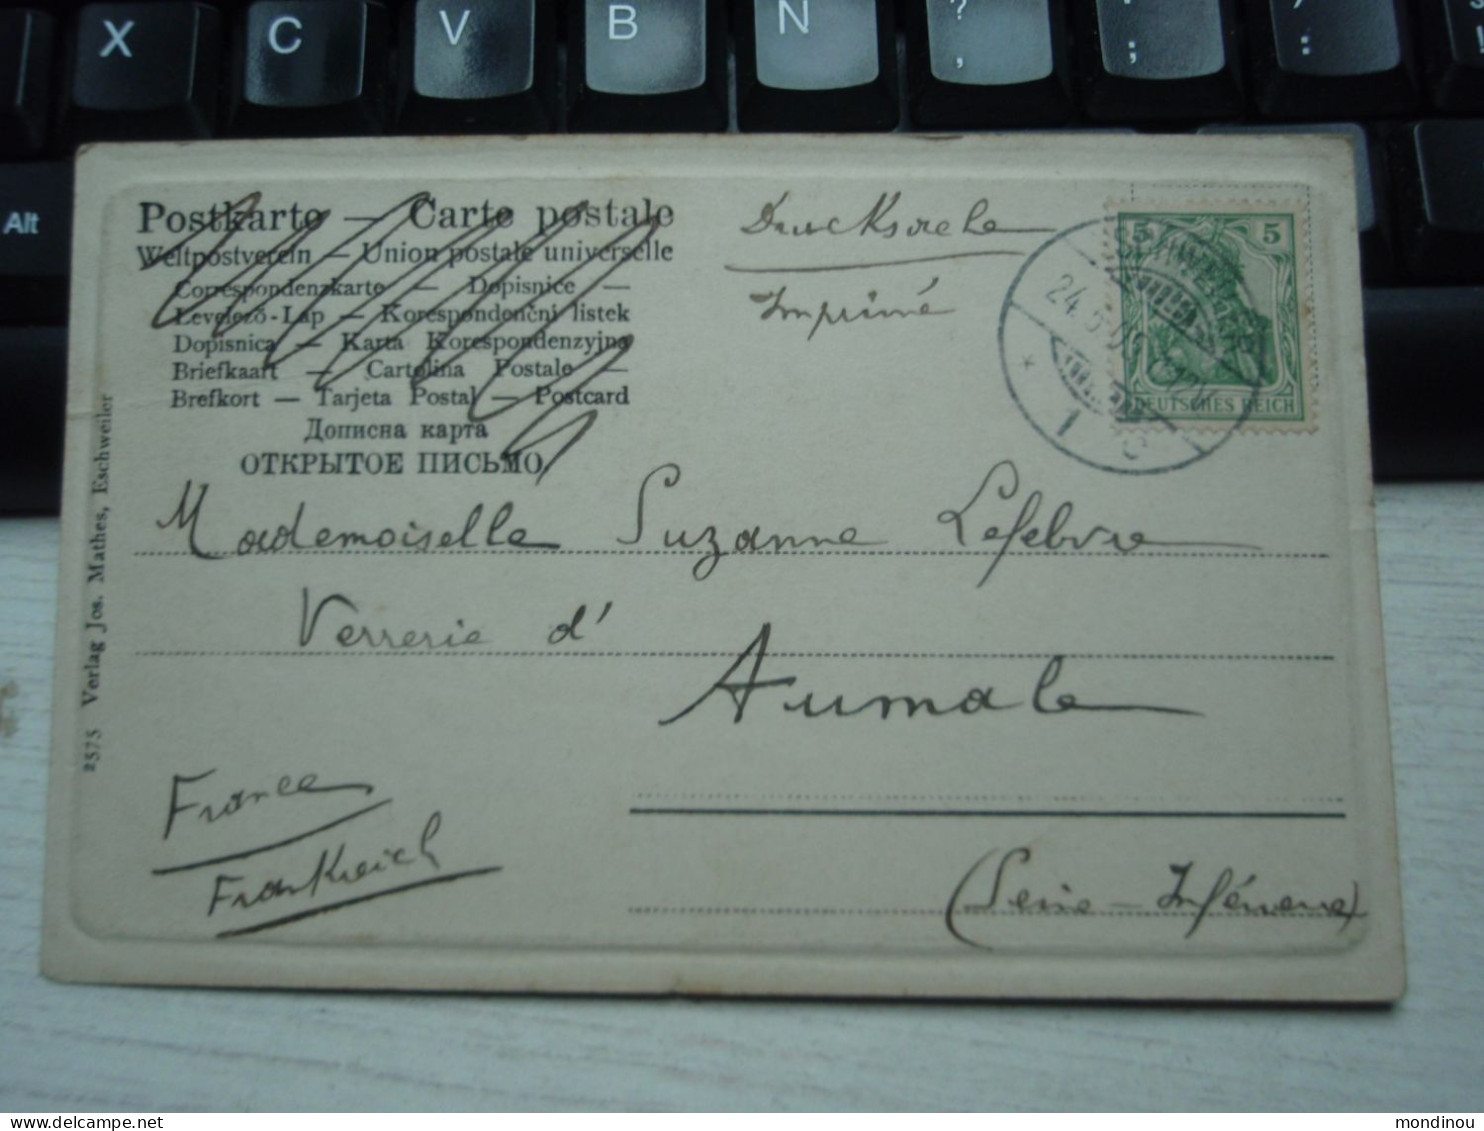 X C V B N ? , . ; / :
Alt
Postkarte — Carte postale
Weltpostverein — Union postale universelle
Correspondenzkarte — Dopisnice —
Levelező-Lap — Korespondenční listek
Dopisnica — Karta Korespondenzyjna
Briefkaart — Cartolina Postale —
Brefkort — Tarjeta Postal — Postcard
Дописна карта
ОТКРЫТОЕ ПИСЬМО
Drucksache
Imprimé
5 5
DEUTSCHES REICH
24. 5.
1 c
Mademoiselle Suzanne Lefebvre
Verrerie d'
Aumale
France
Frankreich
(Seine-Inférieure)
2575 Verlag Jos. Mathes, Eschweiler
mondinou